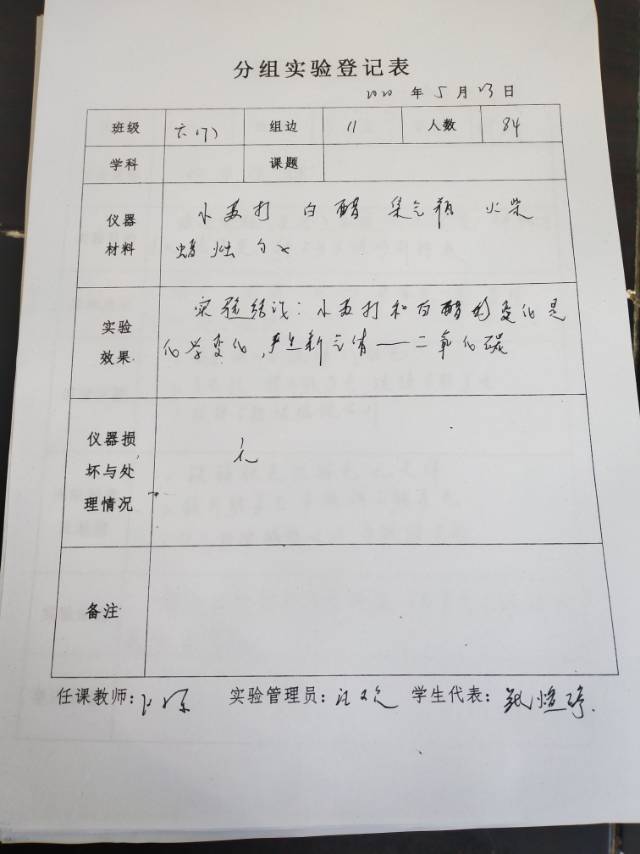 分组实验登记表
2020 年 5 月 23 日
班级 六(7) 组边 11 人数 84
学科 课题
仪器材料 小苏打 白醋 集气瓶 火柴
蜡烛
实验效果 实验结论:小苏打和白醋的变化是
化学变化,产生新气体——二氧化碳
仪器损坏与处理情况 无
备注
任课教师: 实验管理员: 学生代表: